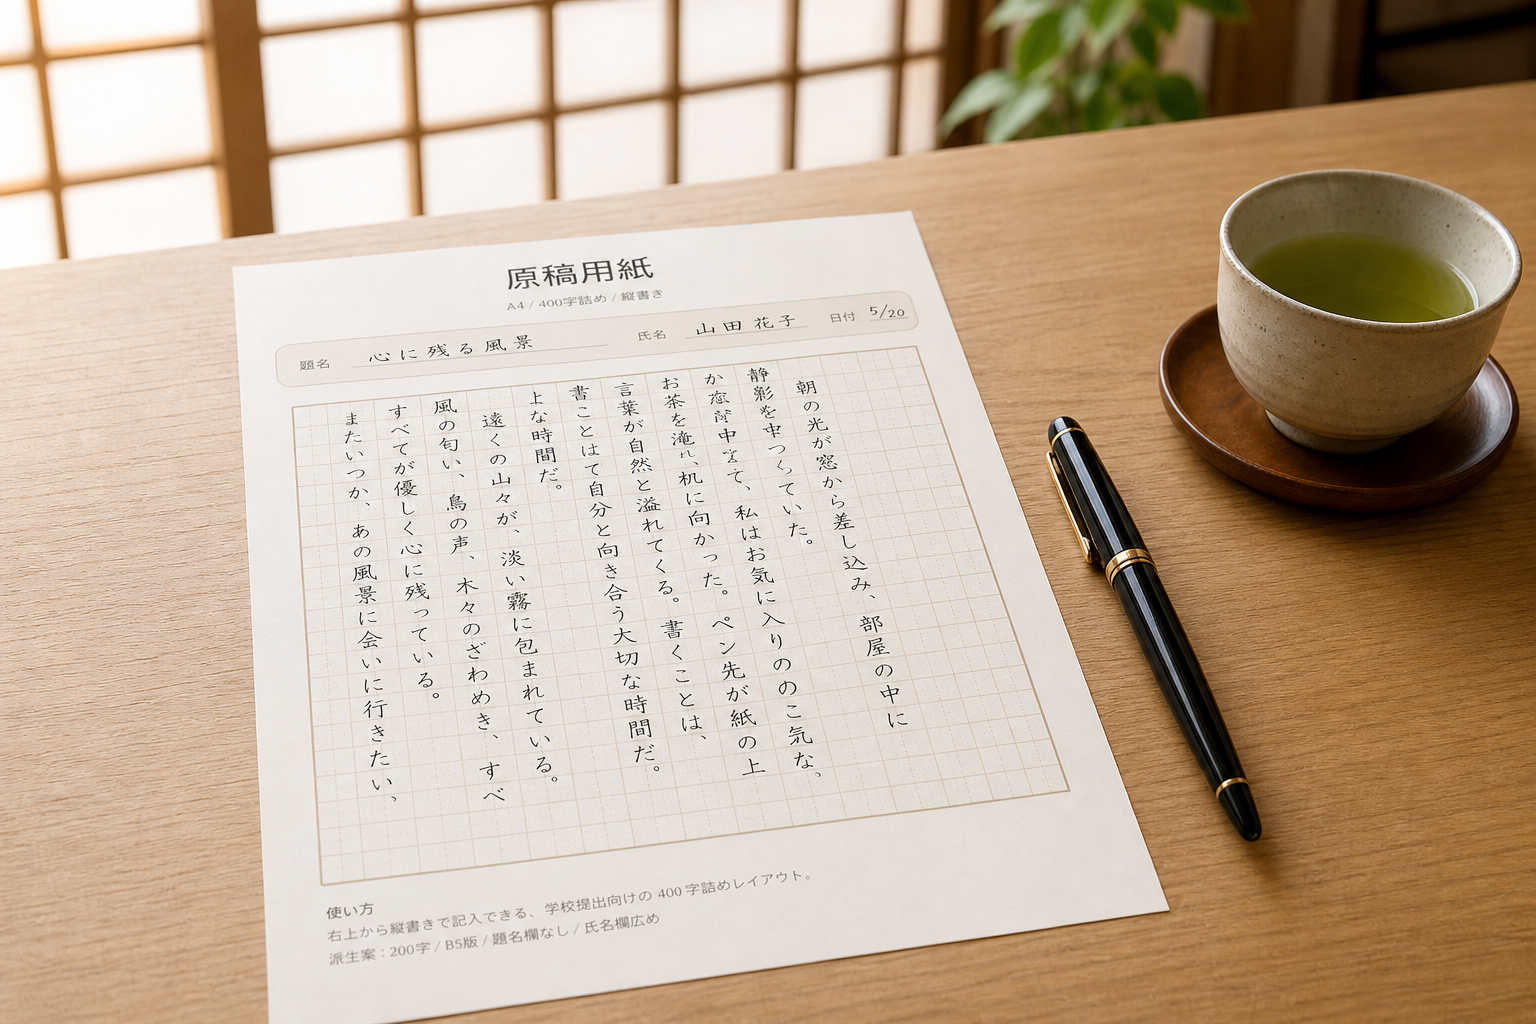 原稿用紙
A4 / 400字詰め / 縦書き
題名 心に残る風景
氏名 山田花子
日付 5/20
朝の光が窓から差し込み、部屋の中に
静彩を つくっていた。
か 中 て、私はお気に入りののこ気な、
お茶を淹れ、机に向かった。ペン先が紙の上
言葉が自然と溢れてくる。書くことは、
書ことはて自分と向き合う大切な時間だ。
上な時間だ。
遠くの山々が、淡い霧に包まれている。
風の匂い、鳥の声、木々のざわめき、すべ
すべてが優しく心に残っている。
またいつか、あの風景に会いに行きたい、
使い方
右上から縦書きで記入できる、学校提出向けの 400 字詰めレイアウト。
派生案：200字 / B5版 / 題名欄なし / 氏名欄広め